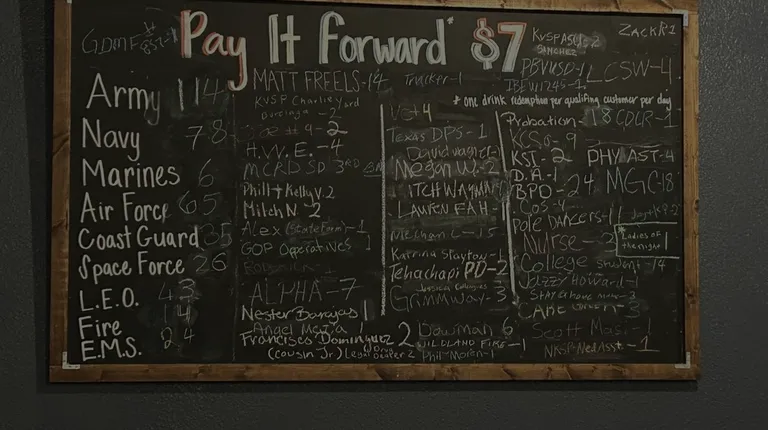 Pay It Forward* $7
ZACKR1
KVSPASYS-2
SANCHEZ
PBVUSD-1
LCSW-4
* one drink redemption per qualifying customer per day
Army 114
Navy 78
Marines 6
Air Force 65
Coast Guard 35
Space Force 26
L.E.O. 43
Fire 14
E.M.S. 24
MATT FREELS-14
Trucker-1
KVSP Charlie Yard
H.W.E.-4
MCRD SD 3RD BN
Phil + Kelly V. 2
Mitch N. 2
Alex (State Farm) - 1
GOP Operatives
ALPHA-7
Nester Barajas 1
Angel Mejia 1
Francisco Dominguez 2
(cousin Jr) Legal Drug Dealer 2
Vet 4
Texas DPS-1
David Wagner-1
Megan W.-2
LAUREN FAH-
Mechanic-15
Katrina Stayton-1
Tehachapi PD-2
Grimmway-3
Bowman 6
WILDLAND FIRE-1
Phil Moren-1
Probation
18 CDCR-1
KCSO-9
KSI-2
PHY ASST-4
D.A-1
BPD-24
MGC-18
COS-4
Pole Dancers-11
Nurse-2
Ladies of
the night 1
College Student-14
Jazzy Howard-1
STAY @ HOME MOM-3
CARE GIVER-3
Scott Masi-1
NKSP Med Asst.-1